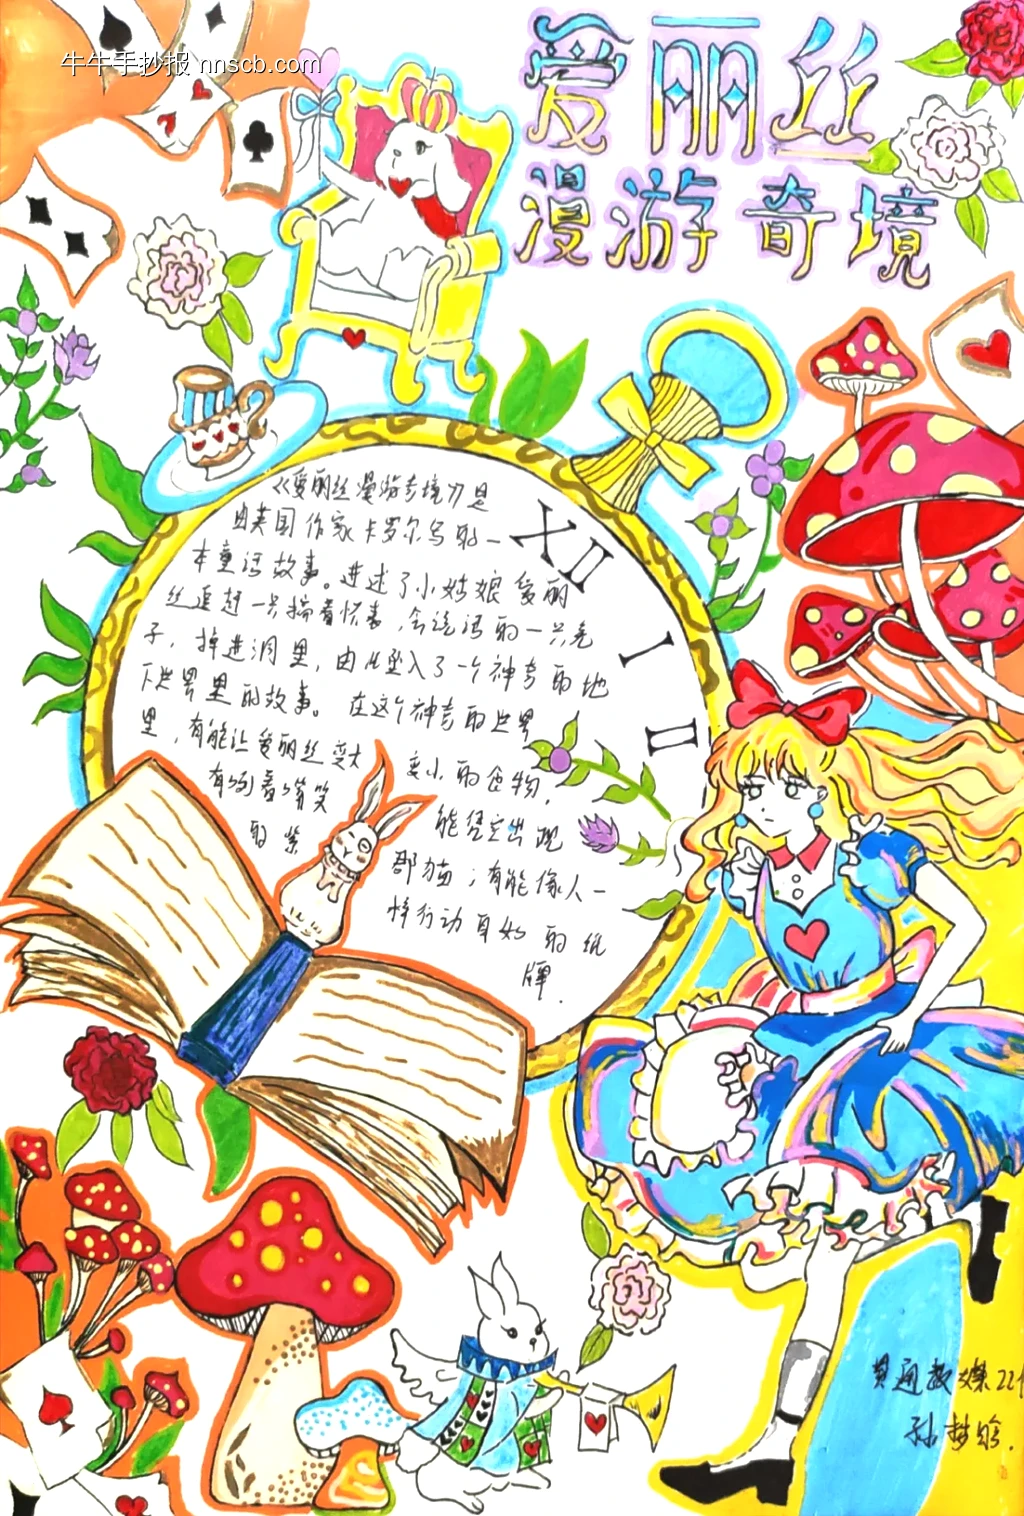 牛牛手抄报 nnscb.com
爱丽丝
漫游奇境
《爱丽丝漫游奇境》是
由英国作家卡罗尔写的一
本童话故事。进述了小姑娘爱丽
丝追赶一只揣着怀表,会说话的一只兔
子,掉进洞里,由此坠入了一个神奇的地
下世界里的故事。在这个神奇的世界
里,有能让爱丽丝变大 变小的食物,
有咧着嘴笑 能凭空出现
的柴 郡猫;有能像人一
样行动自如的纸
牌.
XII
I
II
22
孙梦